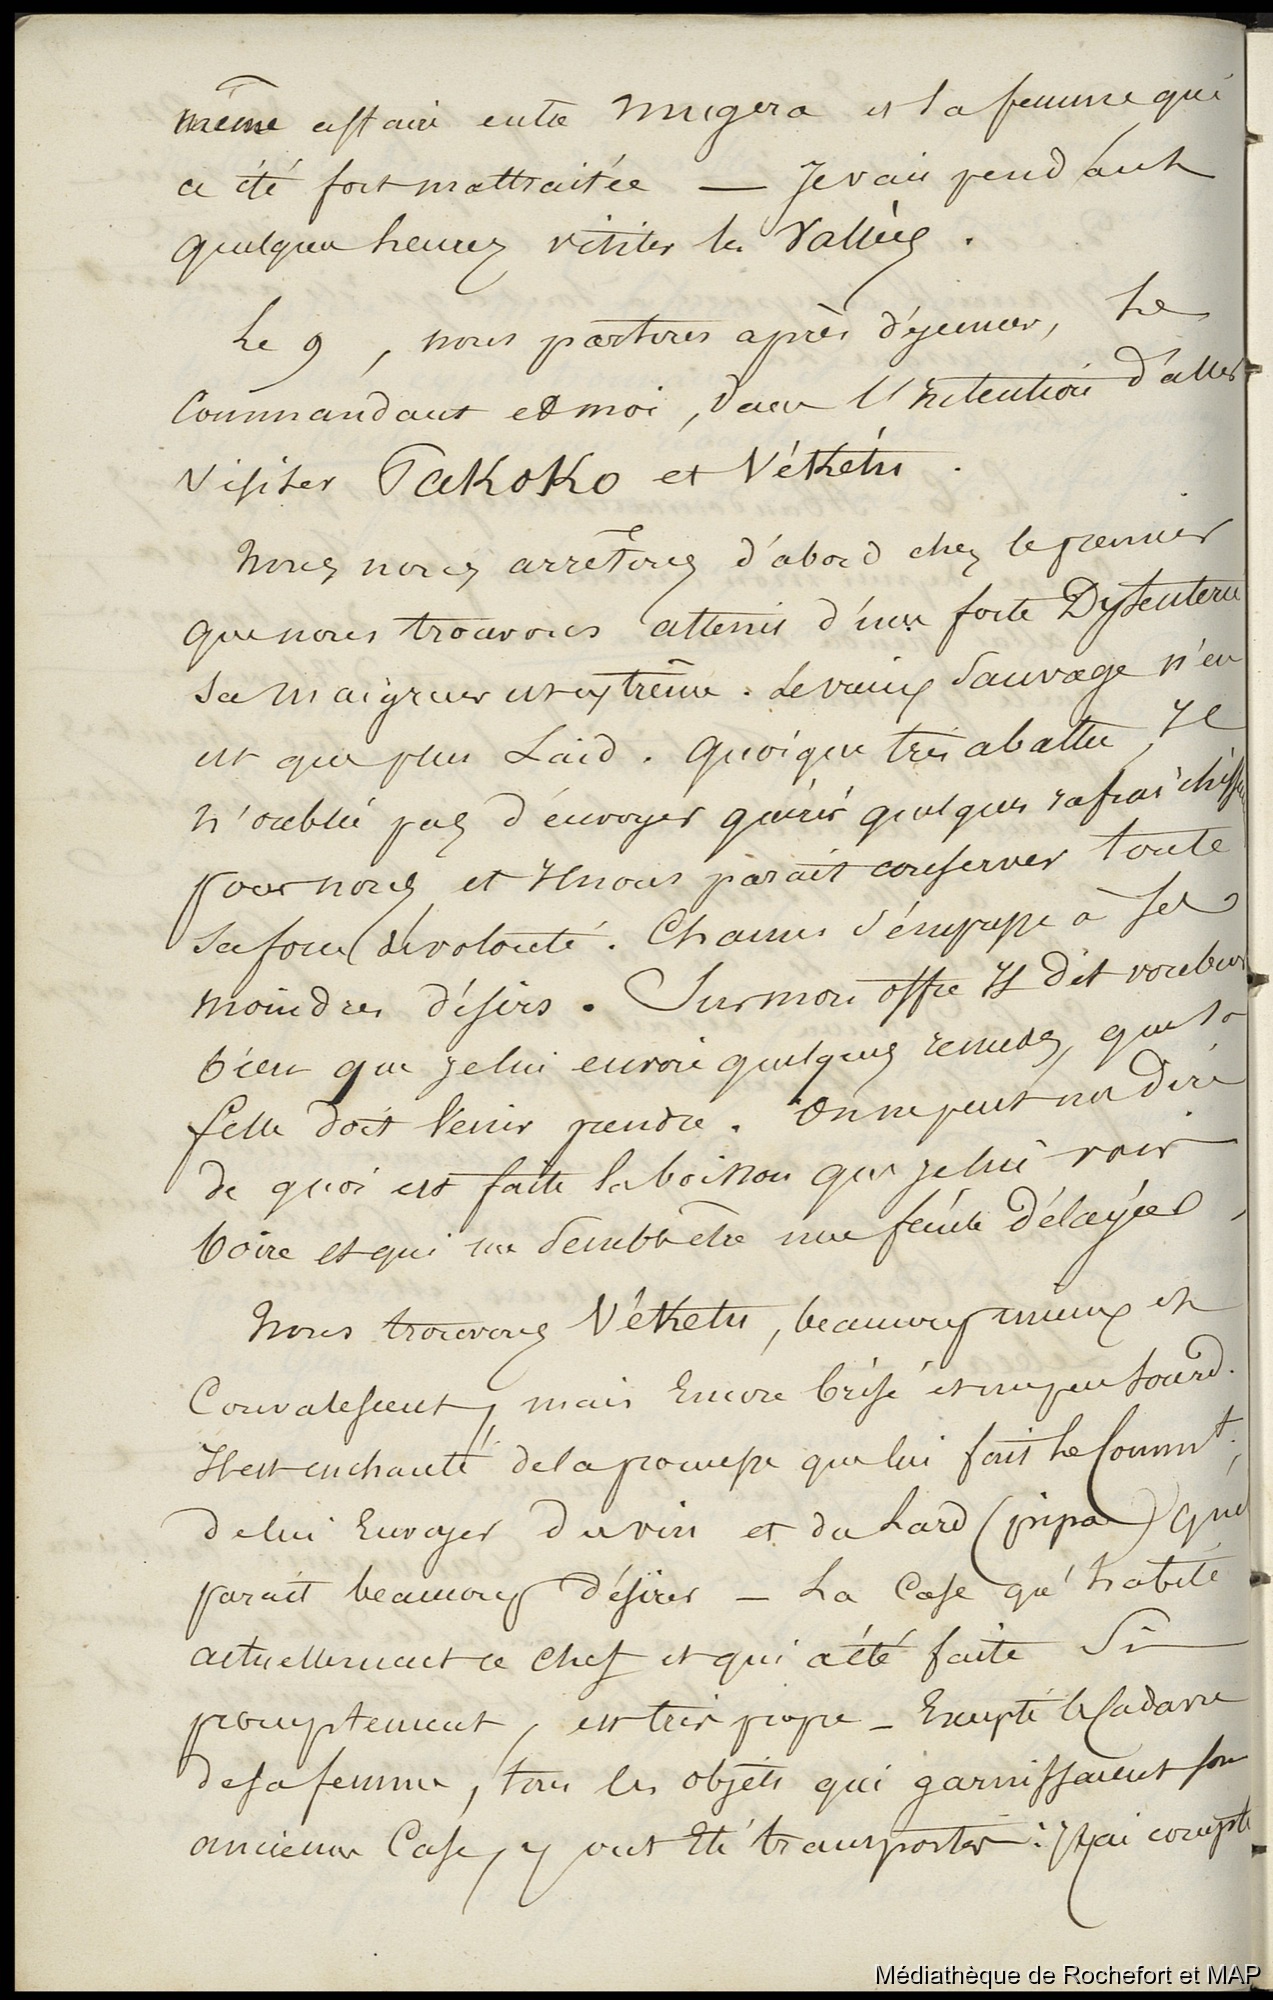 même affaire entre Mugera et sa femme qui
a été fort maltraitée — Je vais pendant
quelques heures visiter les Vallées.
Le 9, nous partons après déjeuner, Le
Commandant et moi, dans l'intention d'aller
visiter Takoko et Vékétu.
Nous nous arrêtons d'abord chez le premier
que nous trouvons atteint d'une forte Dysenterie
sa maigreur est extrême. Le vieux Sauvage n'en
est que plus Laid. Quoique très abattu, Il
n'oublie pas d'envoyer quérir quelques rafraîchiss
pour nous et Il nous paraît conserver toute
sa force de volonté. Chacun s'empresse à ses
moindres désirs. Sur mon offre Il dit vouloir
bien que je lui envoie quelques remèdes, que sa
fille doit venir prendre. On ne peut me dire
de quoi est faite la boisson que je lui vois
boire et qui me semble être une fécule délayée,
Nous trouvons Vékétu, beaucoup mieux et
Convalescent, mais Encore brisé et un peu Sourd.
Il est enchanté de la promesse que lui fait Le Commt.
de lui Envoyer du vin et du Lard (pipa) qu'il
paraît beaucoup désirer — La Case qu'habite
actuellement ce chef et qui a été faite Si
promptement, est très propre — Excepté le Cadavre
de sa femme, tous les objets qui garnissaient son
ancienne Case, y ont Eté transportés : J'y ai compté
Médiathèque de Rochefort et MAP